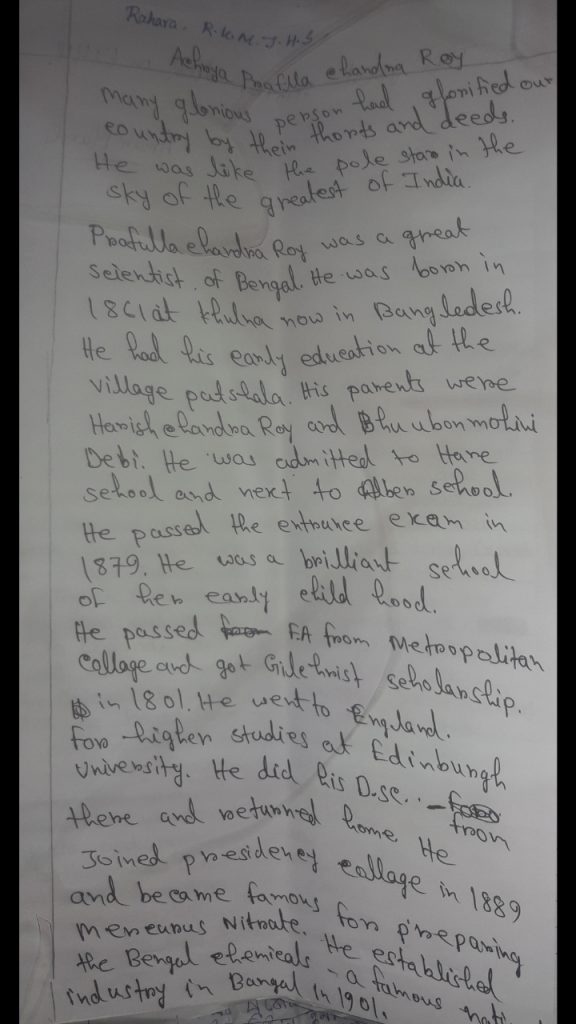 Rahara. R.K.M.J.H.S
Achroya Prafulla chandra Roy
many glorious person had glorified our
country by their thorts and deeds.
He was like the pole star in the
sky of the greatest of India.
Prafulla chandra Roy was a great
scientist of Bengal. He was boron in
1861 at khulna now in Bangledesh.
He had his early education at the
village patshala. His parents were
Harish chandra Roy and Bhuubonmohini
Debi. He was admitted to Hare
school and next to Alber school.
He passed the entrance exam in
1879. He was a brilliant school
of her early child hood.
He passed F.A from Metropolitan
Collage and got Gilchrist scholarship.
in 1801. He went to England.
for higher studies at Edinburgh
University. He did his D.sc. from
there and returned home. He
Joined presidency collage in 1889
and became famous for preparing
mercurus Nitrate. He established
the Bengal chemicals - a famous
industry in Bangal in 1901.